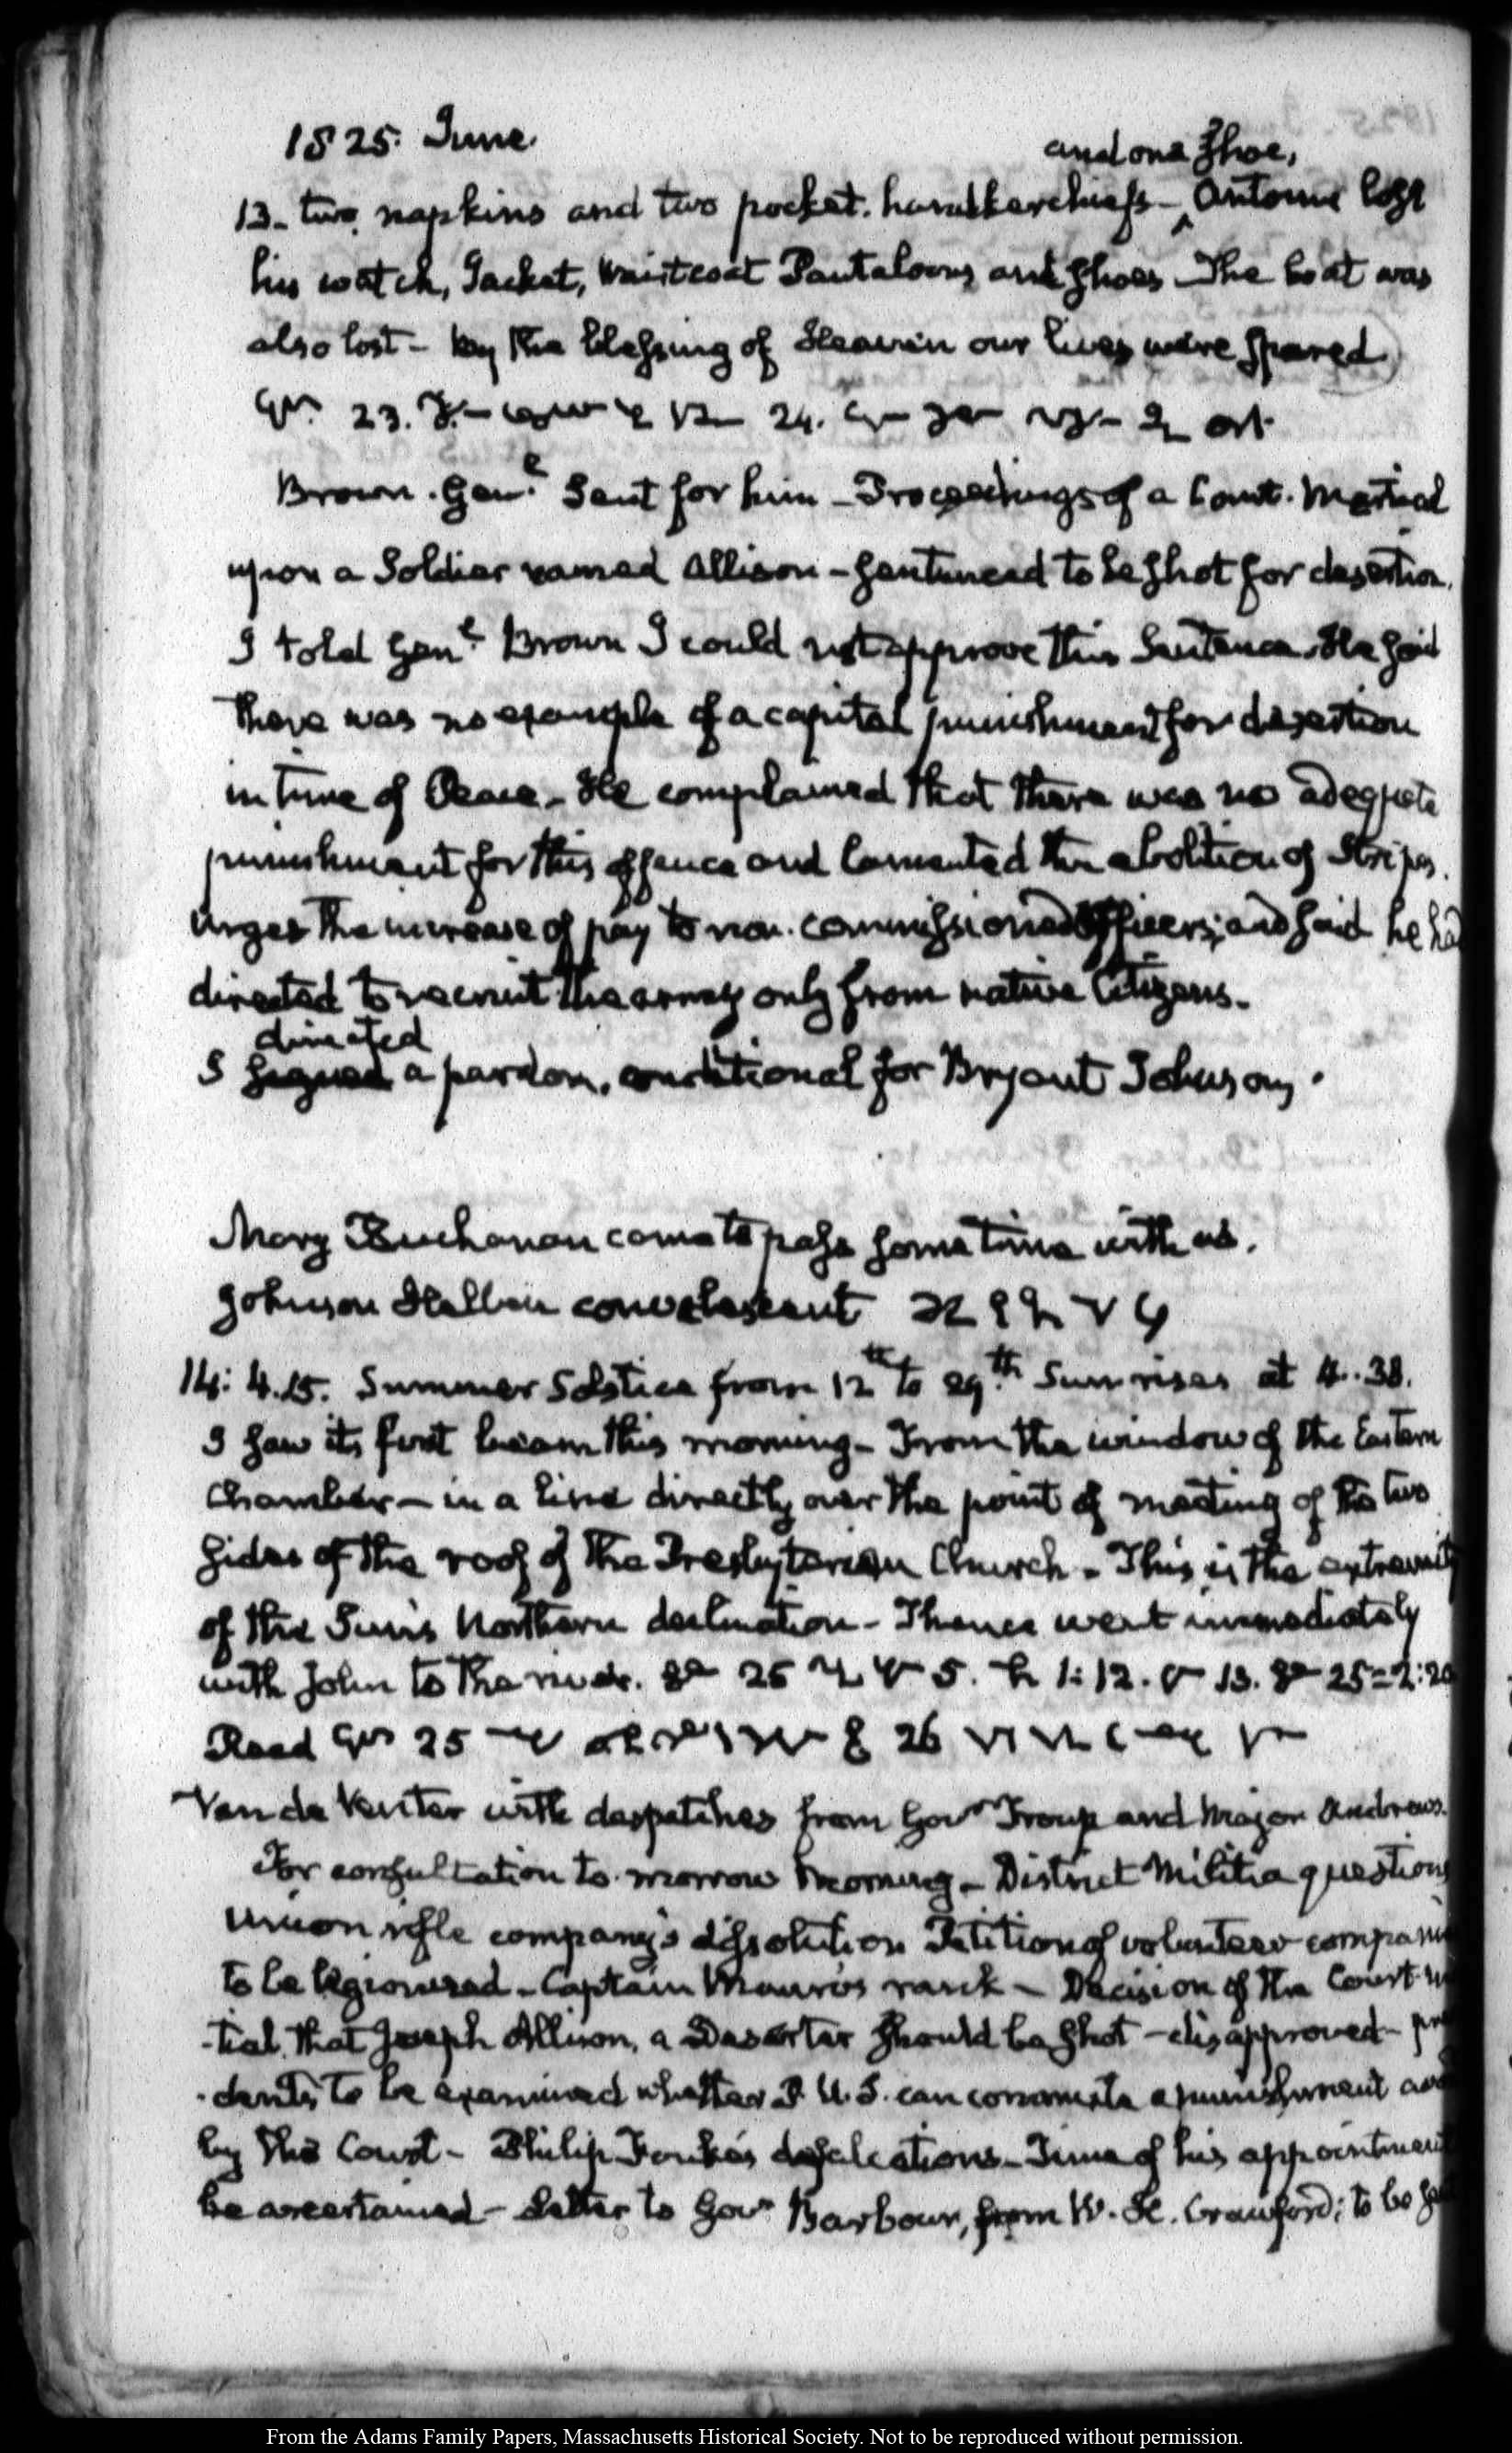 1825. June.
and one shoe,
13. two napkins and two pocket. handkerchiefs - ^ Antoine lost
his watch, Jacket, Waistcoat Pantaloons and shoes. The boat was
also lost - by the blessing of Heaven our lives were spared
23. 24.
Brown. Genl. Sent for him - Proceedings of a Court. Martial
upon a Soldier named Allison - sentenced to be shot for desertion.
I told Genl. Brown I could not approve this Sentence. He said
there was no example of a capital punishment for desertion
in time of Peace - He complained that there was no adequate
punishment for this offence and lamented the abolition of Stripes.
Urges the increase of pay to non. commissioned Officers; and said he had
directed to recruit the army only from native Citizens.
directed
I signed a pardon, conditional for Bryant Johnson.
Mary Buchanan came to pass some time with us.
Johnson Hellen convalescent
14: 4.15. Summer Solstice from 12th to 29th. Sun rises at 4..38.
I saw its first beam this morning - From the window of the Eastern
Chamber - in a line directly over the point of meeting of the two
sides of the roof of the Presbyterian Church - This is the extremity
of the Sun's Northern declination - Thence went immediately
with John to the river. 25 5. 1:12. 13. 25=2:20
Read 25 26
Van de Venter with despatches from Govr Troup and Major Andrews.
For consultation to morrow morning - District Militia questions
Union rifle company's dissolution Petition of volunteer compani
to be - Captain Mauro's rank - Decision of the Court
-tial. that Joseph Allison, a Deserter should be shot - disapproved -
-dents to be examined whether P. U.S. can commute a punishment
by the Court - Philip Fouke's defalcations - Time of his appointment
be ascertained - Letter to Govr Barbour, from W. H. Crawford; to be
From the Adams Family Papers, Massachusetts Historical Society. Not to be reproduced without permission.